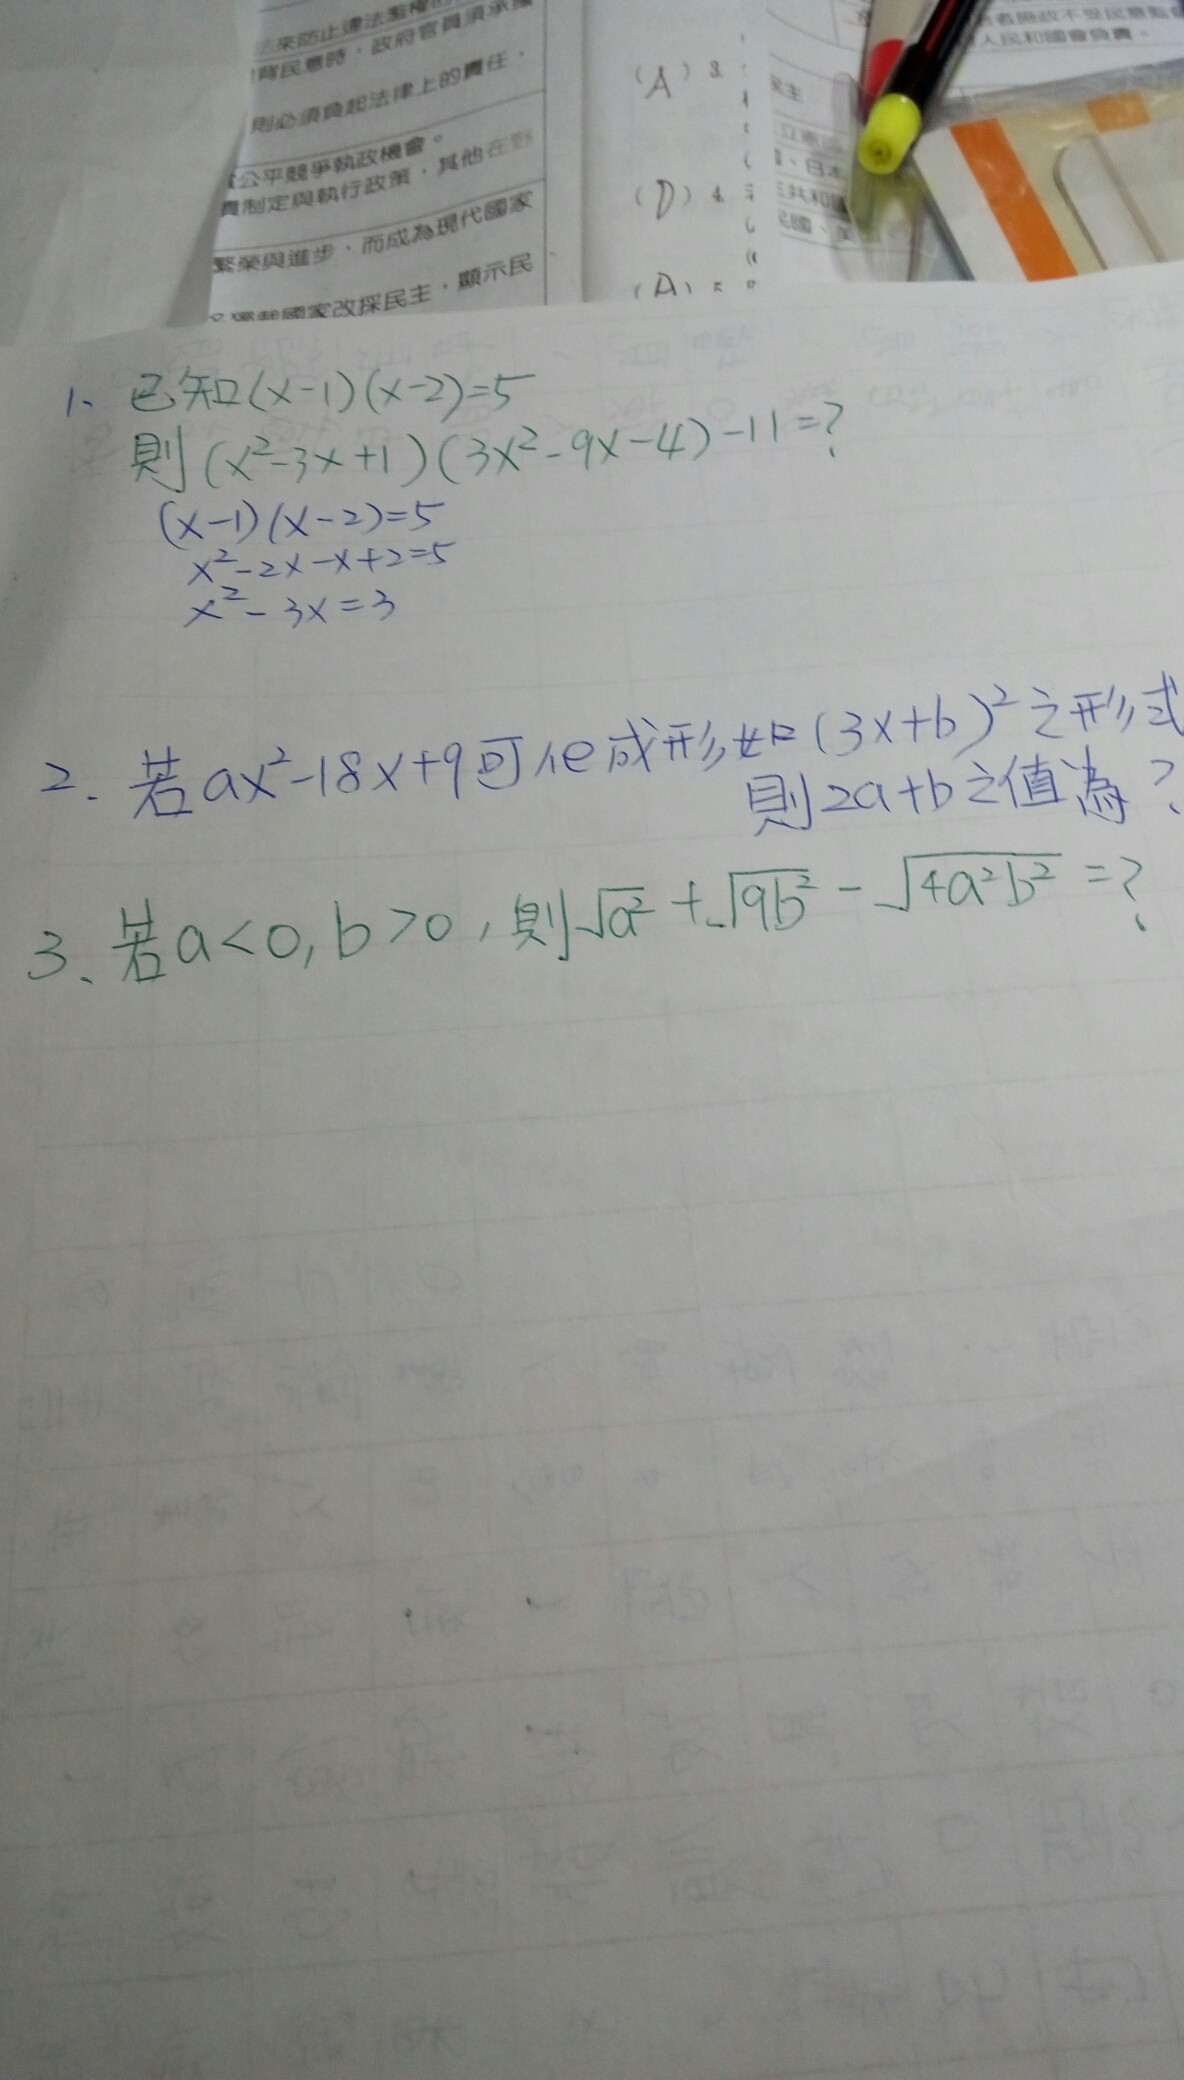 來防止違法濫權
背民意時，政府官員須承擔
則必須負起法律上的責任，
公平競爭執政機會。
責制定與執行政策，其他在野
繁榮與進步，而成為現代國家
國家改採民主，顯示民
(A) 3.
(D) 4.
(A)
者施政不受民意監督
人民和國會負責。
民主
立憲
、日本
共和國
民國、美
1. 已知(x-1)(x-2)=5
則(x²-3x+1)(3x²-9x-4)-11=?
(x-1)(x-2)=5
x²-2x-x+2=5
x²-3x=3
2. 若ax²-18x+9可化成形如(3x+b)²之形式
則2a+b之值為?
3、若a<0,b>0,則√a²+√9b²-√4a²b²=?